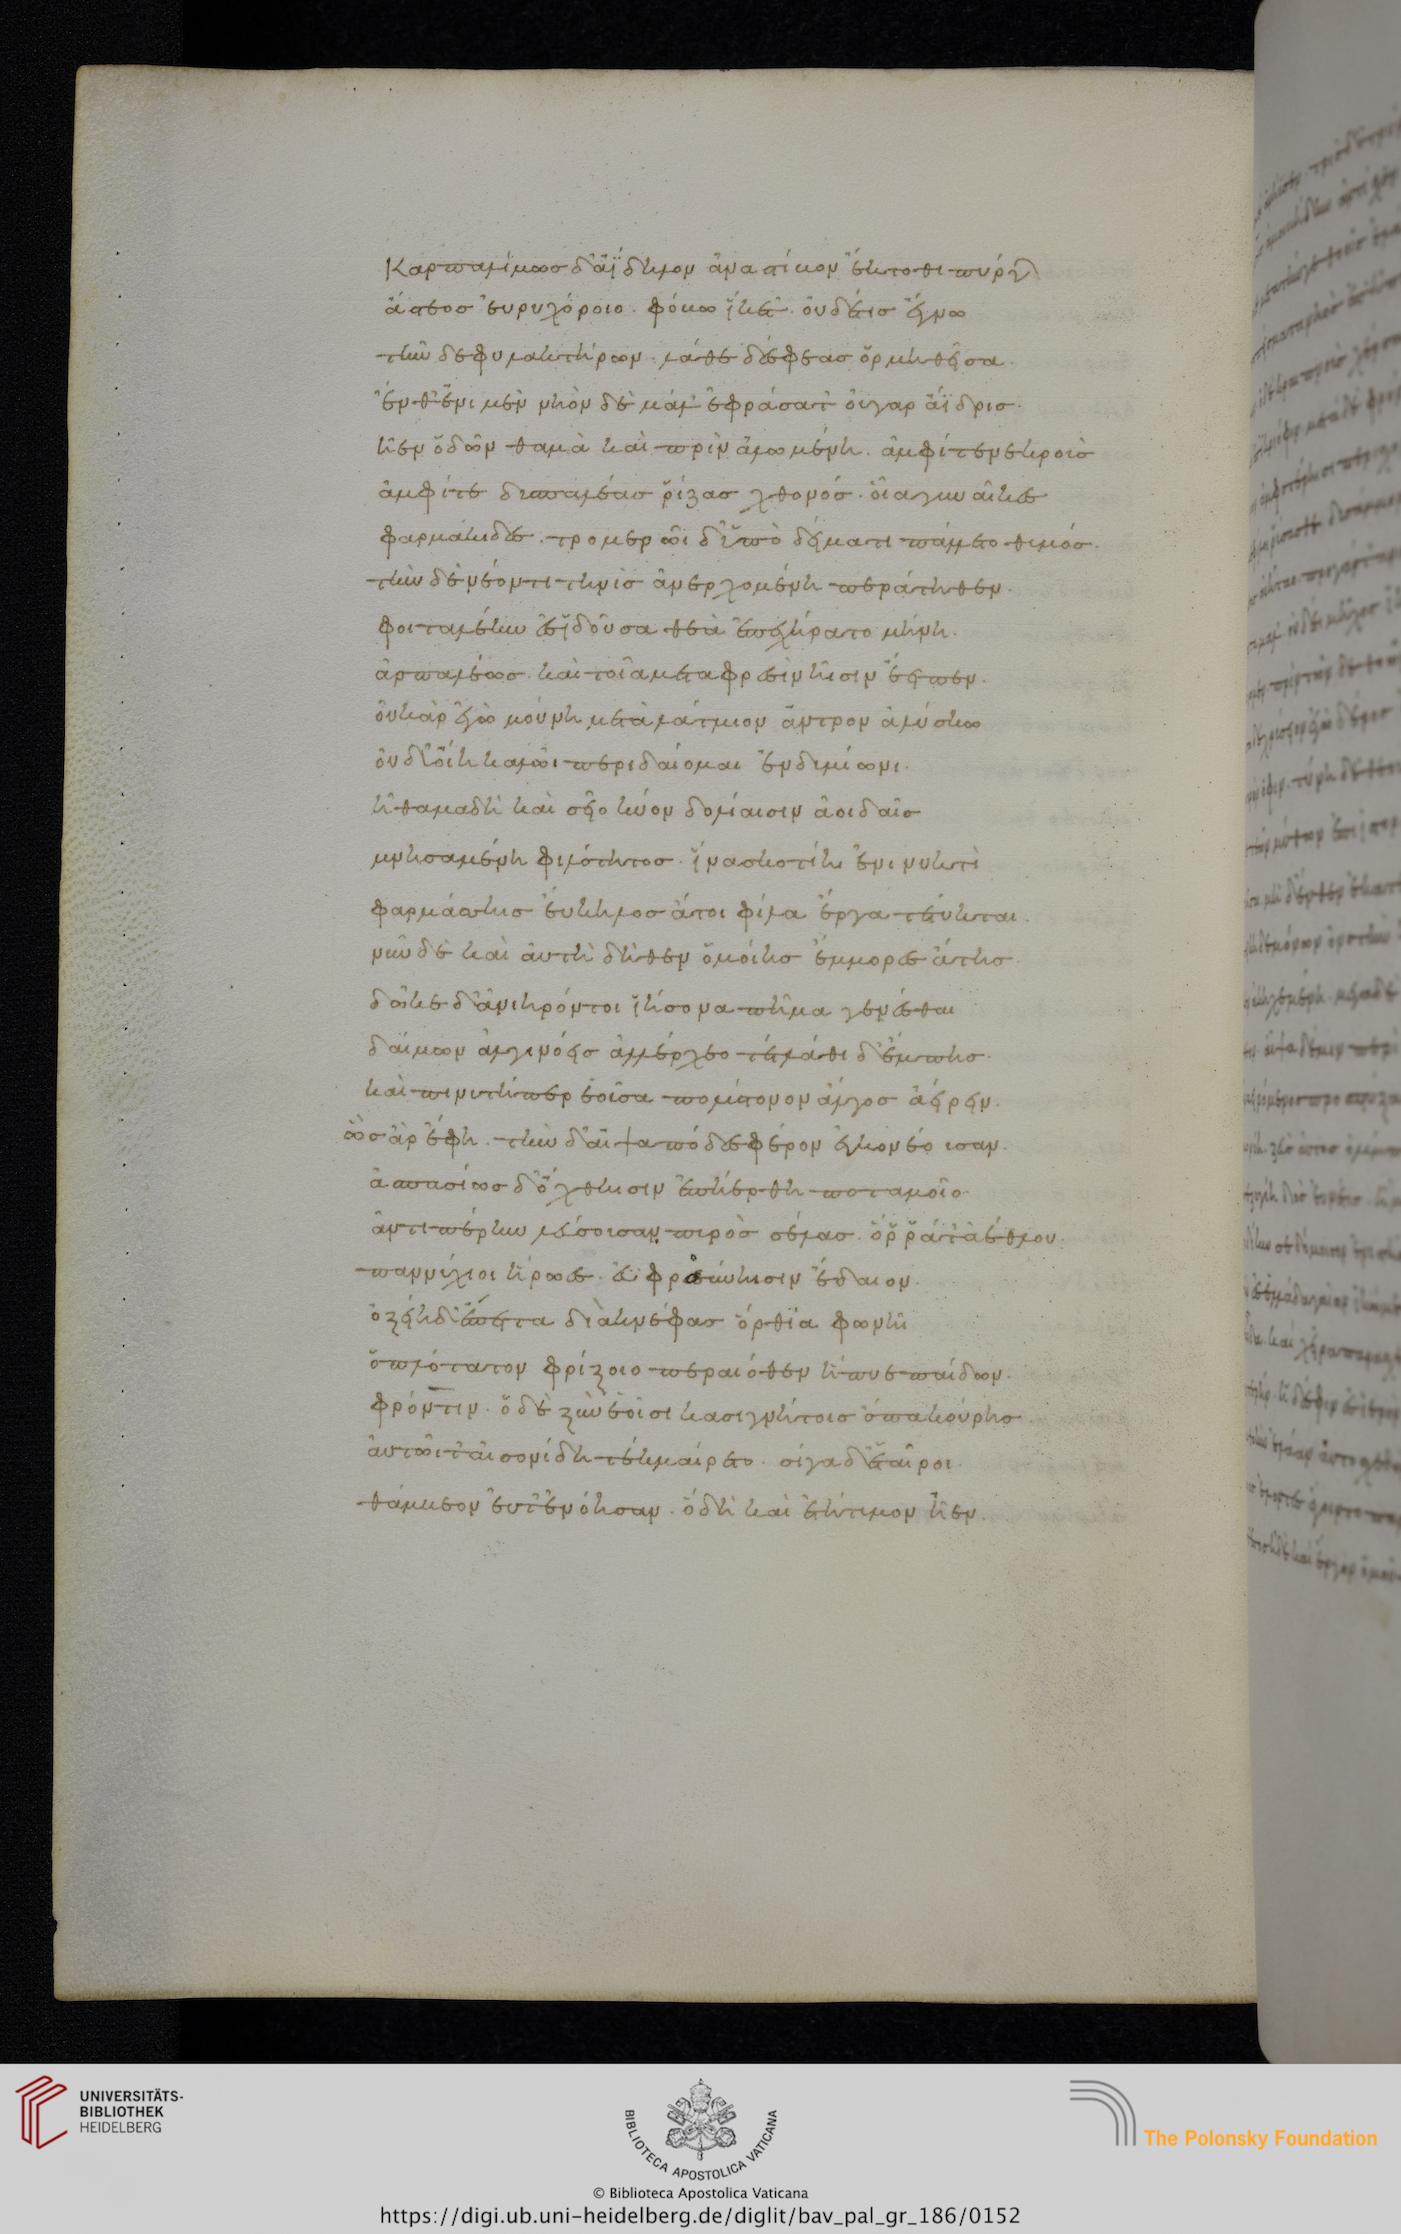 Καρπαλίμως δ' ἀΐδηλον ἀνα στίβον ἔκτοθι πύργων
ἄστεος εὐρυχόροιο. φόβω ἵκετ'. οὐδέ τις ἔγνω
τήν δε φυλακτήρων. λάθε δέ σφεας ὁρμηθεῖσα.
ἔνθεν ἴμεν νηὸν δὲ μάλ' ἐφράσατ' οὐ γαρ ἄϊδρις.
ἦεν ὁδῶν θαμὰ καὶ πρὶν ἀλωμένη. ἀμφί τε νεκροὺς
ἀμφί τε δυσπαλέας ῥίζας χθονός. οἷα γυναῖκες
φαρμακίδες. τρομερῶι δ' ὑπὸ δείματι πάλλετο θυμός.
τὴν δὲ νέον τιτηνὶς ἀνερχομένη περάτηθεν.
φοιταλέην ἐσιδοῦσα θεὰ ἐπεχήρατο μήνη.
ἁρπαλέως. καὶ τοῖα μετα φρεσὶν ᾗσιν ἔειπεν.
οὐκ ἄρ' ἐγὼ μούνη μετὰ λάτμιον ἄντρον ἀλύσκω
οὐδ' οἴη καλῶι περιδαίομαι ἐνδυμίωνι.
ἦ θαμα δὴ καὶ σεῖο κύον δολίαισιν ἀοιδαῖς
μνησαμένη φιλότητος. ἵνα σκοτίη ἐνι νυκτὶ
φαρμάσσης εὔκηλος ἅ τοι φίλα ἔργα τέτυκται.
νῦν δὲ καὶ αὐτὴ δῆθεν ὁμοίης ἔμμορες ἄτης.
δῶκε δ' ἀνιηρόν τοι ἰήσονα πῆμα γενέσθαι
δαίμων ἀλγινόεις ἀλλ' ἔρχεο τέτλαθι δ' ἔμπης.
καὶ πινυτή περ ἐοῦσα πολύστονον ἄλγος ἀείρειν.
ὣς ἄρ' ἔφη. τὴν δ' αἶψα πόδες φέρον ἐγκονέουσαν.
ἀσπασίως δ' ὄχθησιν ἐπηέρθη ποταμοῖο
ἀντιπέρην λεύσσουσαν πυρὸς σέλας. ὅ ῥά τ' ἀέθλου
παννύχιοι ἥρωες. ἐϋφροσύνησιν ἔδαιον.
ὀξείη δἤπειτα διὰ κνέφας ὄρθια φωνῇ
ὁπλότατον φρίξοιο περαιόθεν ἤπυε παίδων.
φρόντιν. ὁ δὲ ξὺν ἑοῖσι κασιγνήτοις ὄπα κούρης
αὐτῶι τ' αἰσονίδη τεκμαίρετο. σίγα δ' ἑταῖροι
θάμβεον εὖτ' ἐνόησαν. ὃ δὴ καὶ ἐτήτυμον ἦεν.
UNIVERSITÄTS-
BIBLIOTHEK
HEIDELBERG
BIBLIOTECA APOSTOLICA VATICANA
The Polonsky Foundation
© Biblioteca Apostolica Vaticana
https://digi.ub.uni-heidelberg.de/diglit/bav_pal_gr_186/0152